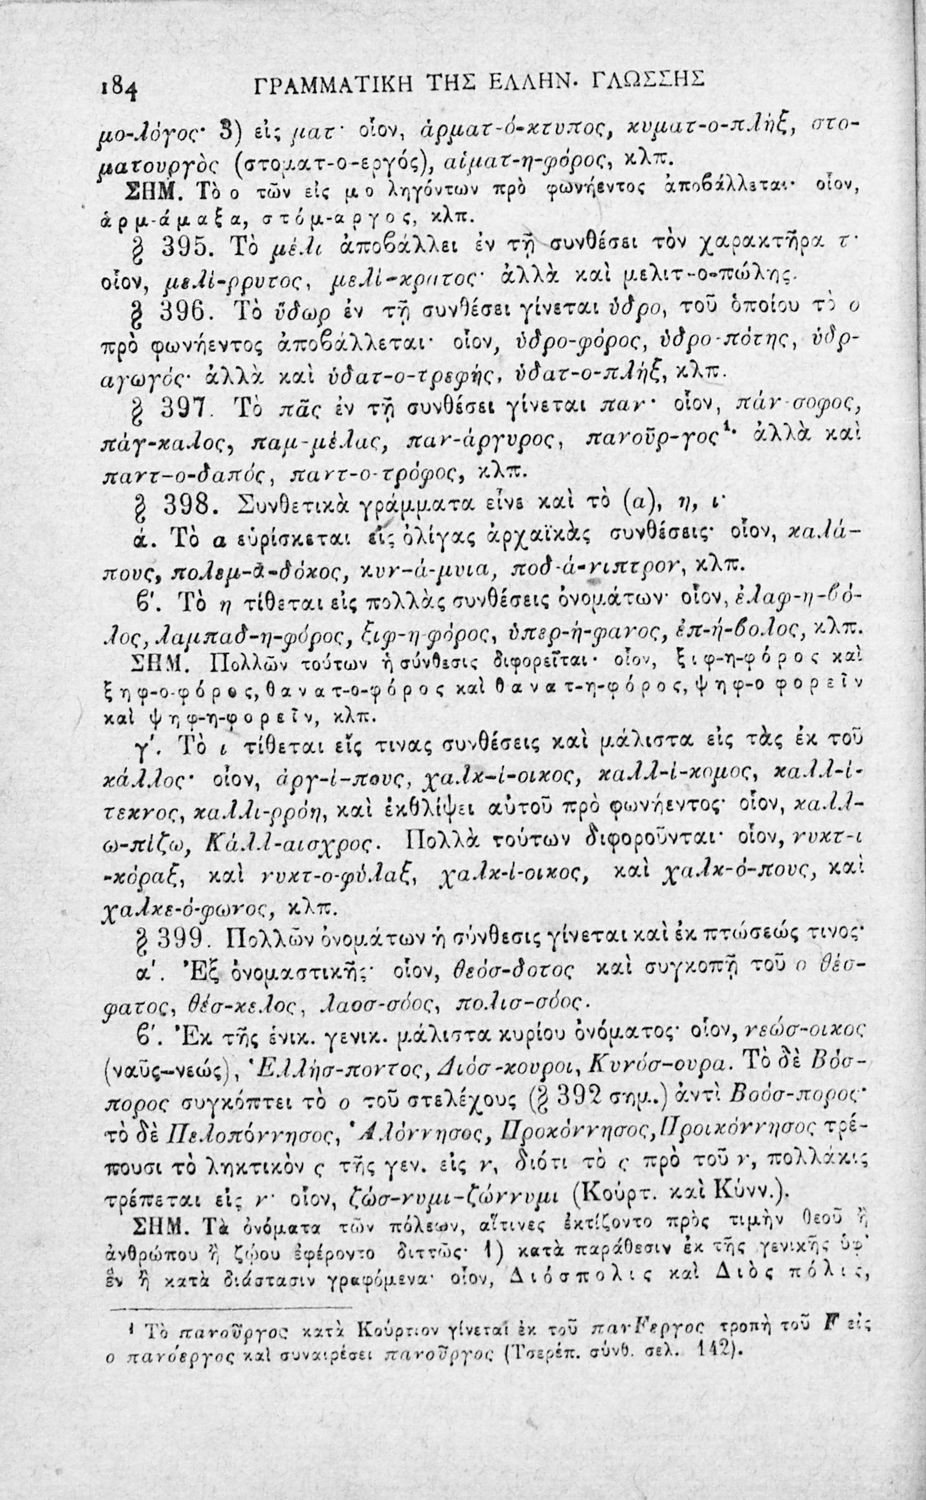 184 ΓΡΑΜΜΑΤΙΚΗ ΤΗΣ ΕΛΛΗΝ. ΓΛΩΣΣΗΣ
μο-λόγος· 3) εἰς ματ· οἷον, ἁρματ-ό-κτυπος, κυματ-ο-πλὴξ, στο-
ματουργὸς (στοματ-ο-εργός), αἱματ-η-φόρος, κλπ.
ΣΗΜ. Τὸ ο τῶν εἰς μο ληγόντων πρὸ φωνήεντος ἀποβάλλεται· οἷον,
ἁρμ-άμαξα, στόμ-αργος, κλπ.
§ 395. Τὸ μέλι ἀποβάλλει ἐν τῇ συνθέσει τὸν χαρακτῆρα τ·
οἷον, μελί-ρρυτος, μελί-κρατος· ἀλλὰ καὶ μελιτ-ο-πώλης.
§ 396. Τὸ ὕδωρ ἐν τῇ συνθέσει γίνεται ὑδρο, τοῦ ὁποίου τὸ ο
πρὸ φωνήεντος ἀποβάλλεται· οἷον, ὑδρο-φόρος, ὑδρο-πότης, ὑδρ-
αγωγός· ἀλλὰ καὶ ὑδατ-ο-τρεφὴς, ὑδατ-ο-πλήξ, κλπ.
§ 397. Τὸ πᾶς ἐν τῇ συνθέσει γίνεται παν· οἷον, πάν-σοφος,
πάγ-καλος, παμ-μέλας, παν-άργυρος, πανοῦρ-γος¹· ἀλλὰ καὶ
παντ-ο-δαπός, παντ-ο-τρόφος, κλπ.
§ 398. Συνθετικὰ γράμματα εἶνε καὶ τὸ (α), η, ι·
ά. Τὸ α εὑρίσκεται εἰς ὀλίγας ἀρχαϊκὰς συνθέσεις· οἷον, καλά-
πους, πολεμ-ά-δόκος, κυν-ά-μυια, ποδ-ά-νιπτρον, κλπ.
β'. Τὸ η τίθεται εἰς πολλὰς συνθέσεις ὀνομάτων· οἷον, ἐλαφ-η-βό-
λος, λαμπαδ-η-φόρος, ξιφ-η-φόρος, ὑπερ-ή-φανος, ἐπ-ή-βολος, κλπ.
ΣΗΜ. Πολλῶν τούτων ἡ σύνθεσις διφορεῖται· οἷον, ξιφ-η-φόρος καὶ
ξηφ-ο-φόρος, θανατ-ο-φόρος καὶ θανατ-η-φόρος, ψηφ-ο φορεῖν
καὶ ψηφ-η-φορεῖν, κλπ.
γ'. Τὸ ι τίθεται εἴς τινας συνθέσεις καὶ μάλιστα εἰς τὰς ἐκ τοῦ
κάλλος· οἷον, ἀργ-ί-πους, χαλκ-ί-οικος, καλλ-ί-κομος, καλλ-ί-
τεκνος, καλλι-ρρόη, καὶ ἐκθλίψει αὐτοῦ πρὸ φωνήεντος· οἷον, καλλ-
ω-πίζω, Κάλλ-αισχρος. Πολλὰ τούτων διφοροῦνται· οἷον, νυκτ-ι
-κόραξ, καὶ νυκτ-ο-φύλαξ, χαλκ-ί-οικος, καὶ χαλκ-ό-πους, καὶ
χαλκε-ό-φωνος, κλπ.
§ 399. Πολλῶν ὀνομάτων ἡ σύνθεσις γίνεται καὶ ἐκ πτώσεώς τινος·
α'. Ἐξ ὀνομαστικῆς· οἷον, θεόσ-δοτος καὶ συγκοπῇ τοῦ ο θέσ-
φατος, θέσ-κελος, λαοσ-σόος, πολισ-σόος.
β'. Ἐκ τῆς ἑνικ. γενικ. μάλιστα κυρίου ὀνόματος· οἷον, νεώσ-οικος
(ναῦς—νεώς), Ἑλλήσ-ποντος, Διόσ-κουροι, Κυνόσ-ουρα. Τὸ δὲ Βόσ-
πορος συγκόπτει τὸ ο τοῦ στελέχους (§ 392 σημ.) ἀντὶ Βοόσ-πορος·
τὸ δὲ Πελοπόννησος, Ἁλόννησος, Προκόννησος, Προικόννησος τρέ-
πουσι τὸ ληκτικὸν ς τῆς γεν. εἰς ν, διότι τὸ ς πρὸ τοῦ ν, πολλάκις
τρέπεται εἰς ν· οἷον, ζώσ-νυμι-ζώννυμι (Κούρτ. καὶ Κύνν.).
ΣΗΜ. Τὰ ὀνόματα τῶν πόλεων, αἵτινες ἐκτίζοντο πρὸς τιμὴν θεοῦ ἢ
ἀνθρώπου ἢ ζῴου ἐφέροντο διττῶς· 1) κατὰ παράθεσιν ἐκ τῆς γενικῆς ὑφ'
ἓν ἢ κατὰ διάστασιν γραφόμενα· οἷον, Διόσπολις καὶ Διὸς πόλις,
¹ Τὸ πανοῦργος κατὰ Κούρτιον γίνεται ἐκ τοῦ πανFεργος τροπὴ τοῦ F εἰς
ο πανόεργος καὶ συναιρέσει πανοῦργος (Τσερέπ. σύνθ. σελ. 142).